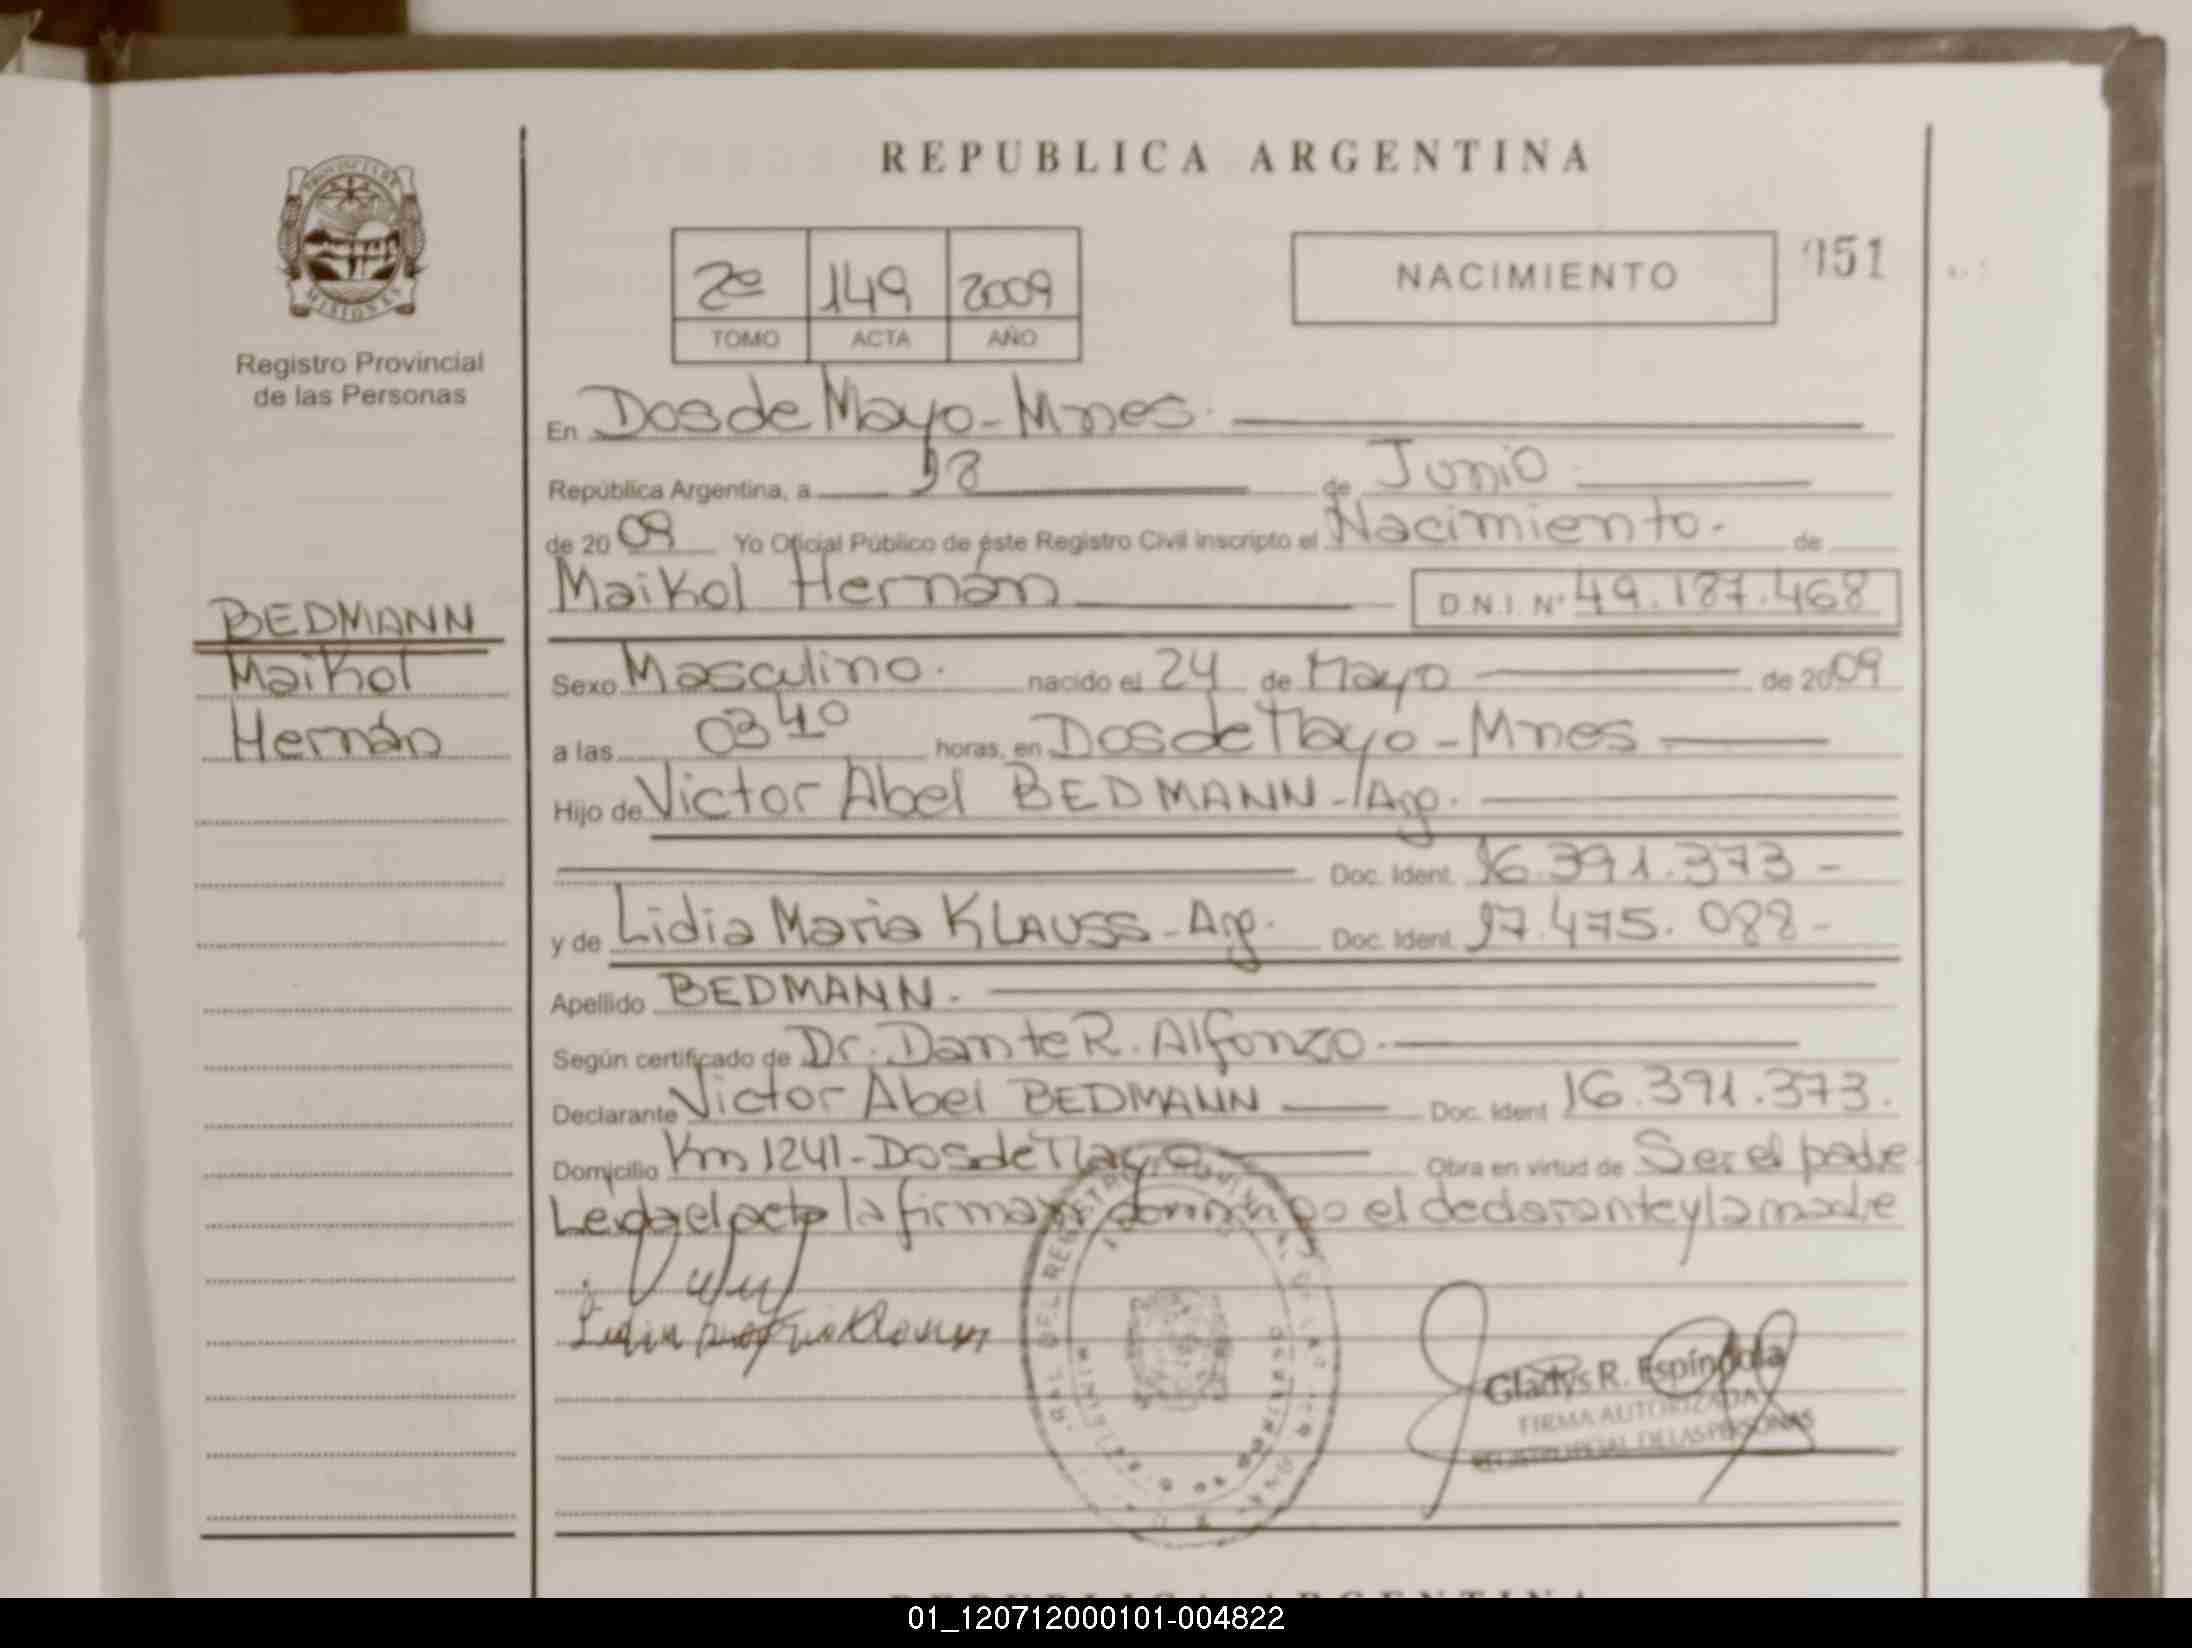 REPUBLICA ARGENTINA
PROVINCIA DE
MISIONES
Registro Provincial
de las Personas
2º 149 2009
TOMO ACTA AÑO
NACIMIENTO
051
En Dos de Mayo - Mnes.
República Argentina, a 18 de Junio
de 2009 Yo Oficial Público de éste Registro Civil inscripto el Nacimiento. de
Maikol Hernán D.N.I. Nº 49.187.468
BEDMANN
Maikol
Hernán
Sexo Masculino. nacido el 24 de Mayo de 2009
a las 03 40 horas, en Dos de Mayo - Mnes
Hijo de Victor Abel BEDMANN - Arg.
Doc. Ident. 16.391.373 -
y de Lidia Maria KLAUSS - Arg. Doc. Ident. 17.475.088 -
Apellido BEDMANN.
Según certificado de Dr. Dante R. Alfonzo.
Declarante Victor Abel BEDMANN Doc. Ident 16.391.373.
Domicilio Km 1241 - Dos de Mayo Obra en virtud de Ser el padre
Leida el acta la firman conmigo el declarante y la madre
Gladys R. Espíndola
FIRMA AUTORIZADA
DE LAS PERSONAS
REPUBLICA ARGENTINA
01_120712000101-004822